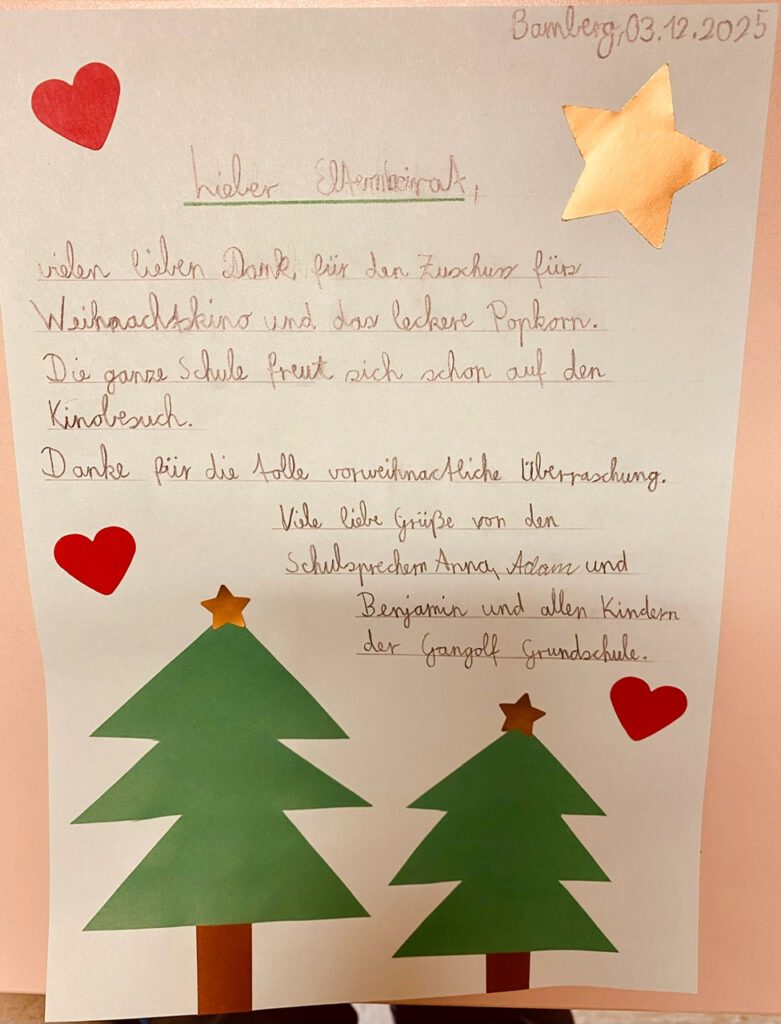 Bamberg, 03.12.2025
Lieber Elternbeirat,
vielen lieben Dank, für den Zuschuss fürs
Weihnachtskino und das leckere Popkorn.
Die ganze Schule freut sich schon auf den
Kinobesuch.
Danke für die tolle vorweihnactliche Überraschung.
Viele liebe Grüße von den
Schulsprechern Anna, Adam und
Benjamin und allen Kindern
der Gangolf Grundschule.